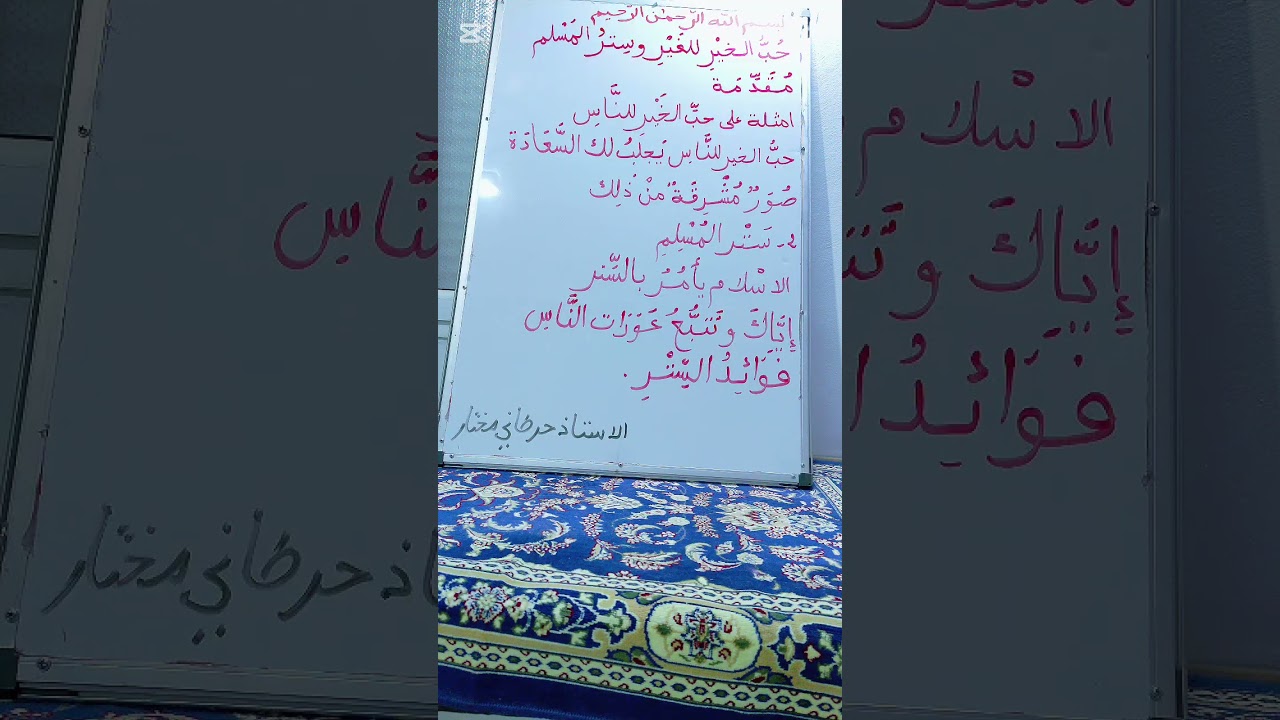 بسم الله الرحمن الرحيم
حُبُّ الخَيْرِ للغَيْرِ وسِترُ المَسْلم
مُقَدِّمَة
امثلة على حبِّ الخَيْرِ للنَّاسِ
حبُّ الخير للنَّاسِ يَجلَبُ لك السَّعَادَة
صُوَرٌ مُشْرِقَةٌ منْ ذلِك
2- سَتْر المُسْلِمِ
الاسْلام يأمُرُ بالسِّتر
إيَّاكَ وتَتَبُّعُ عَوَرَات النَّاسِ
فَوَائِدُ السِّتْرِ.
الاستاذ حركاني مختار